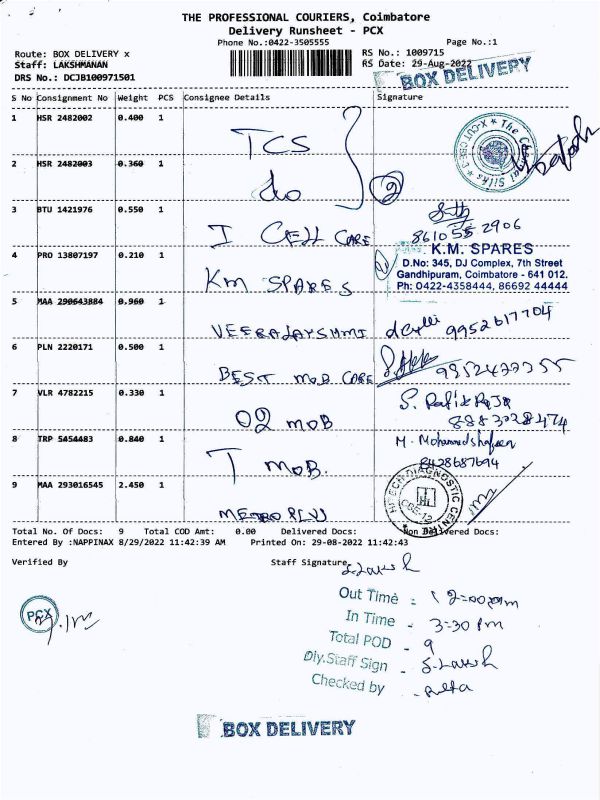 THE PROFESSIONAL COURIERS, Coimbatore
Delivery Runsheet - PCX
Phone No.:0422-3505555
Page No.:1
Route: BOX DELIVERY x
RS No.: 1009715
Staff: LAKSHMANAN
RS Date: 29-Aug-2022
DRS No.: DCJB100971501
BOX DELIVERY
S No Consignment No Weight PCS Consignee Details Signature
1 HSR 2482002 0.400 1 TCS
The Chennai Silks
2 HSR 2482003 0.360 1 do 2
3 BTU 1421976 0.550 1 I CELL CARE
86105 2906
4 PRO 13807197 0.210 1 KM SPARES
K.M. SPARES
D.No: 345, DJ Complex, 7th Street
Gandhipuram, Coimbatore - 641 012.
Ph: 0422-4358444, 86692 44444
5 MAA 290643884 0.960 1 9952617704
6 PLN 2220171 0.500 1 BEST MOB CARE
7 VLR 4782215 0.330 1 O2 MOB
S. Rafik Raja
8883028474
8 TRP 5454483 0.840 1 T MOB.
M. Mohammed
8428687694
9 MAA 293016545 2.450 1 METRO PLUS
HI TECH DIAGNOSTIC CENTRE
CBE-12
Total No. Of Docs: 9 Total COD Amt: 0.00 Delivered Docs: Non Delivered Docs:
Entered By :NAPPINAX 8/29/2022 11:42:39 AM Printed On: 29-08-2022 11:42:43
Verified By
Staff Signature
S. Laksh
PCX
Out Time : 12:00 pm
In Time - 3-30 pm
Total POD - 9
Dly.Staff Sign - S. Laksh
Checked by
BOX DELIVERY